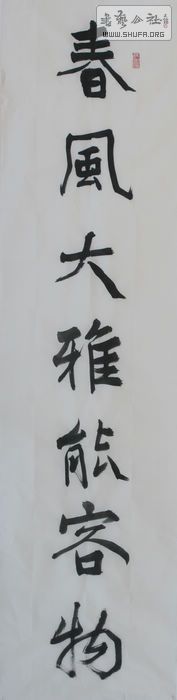 書藝公社
WWW.SHUFA.ORG
春風大雅能容物